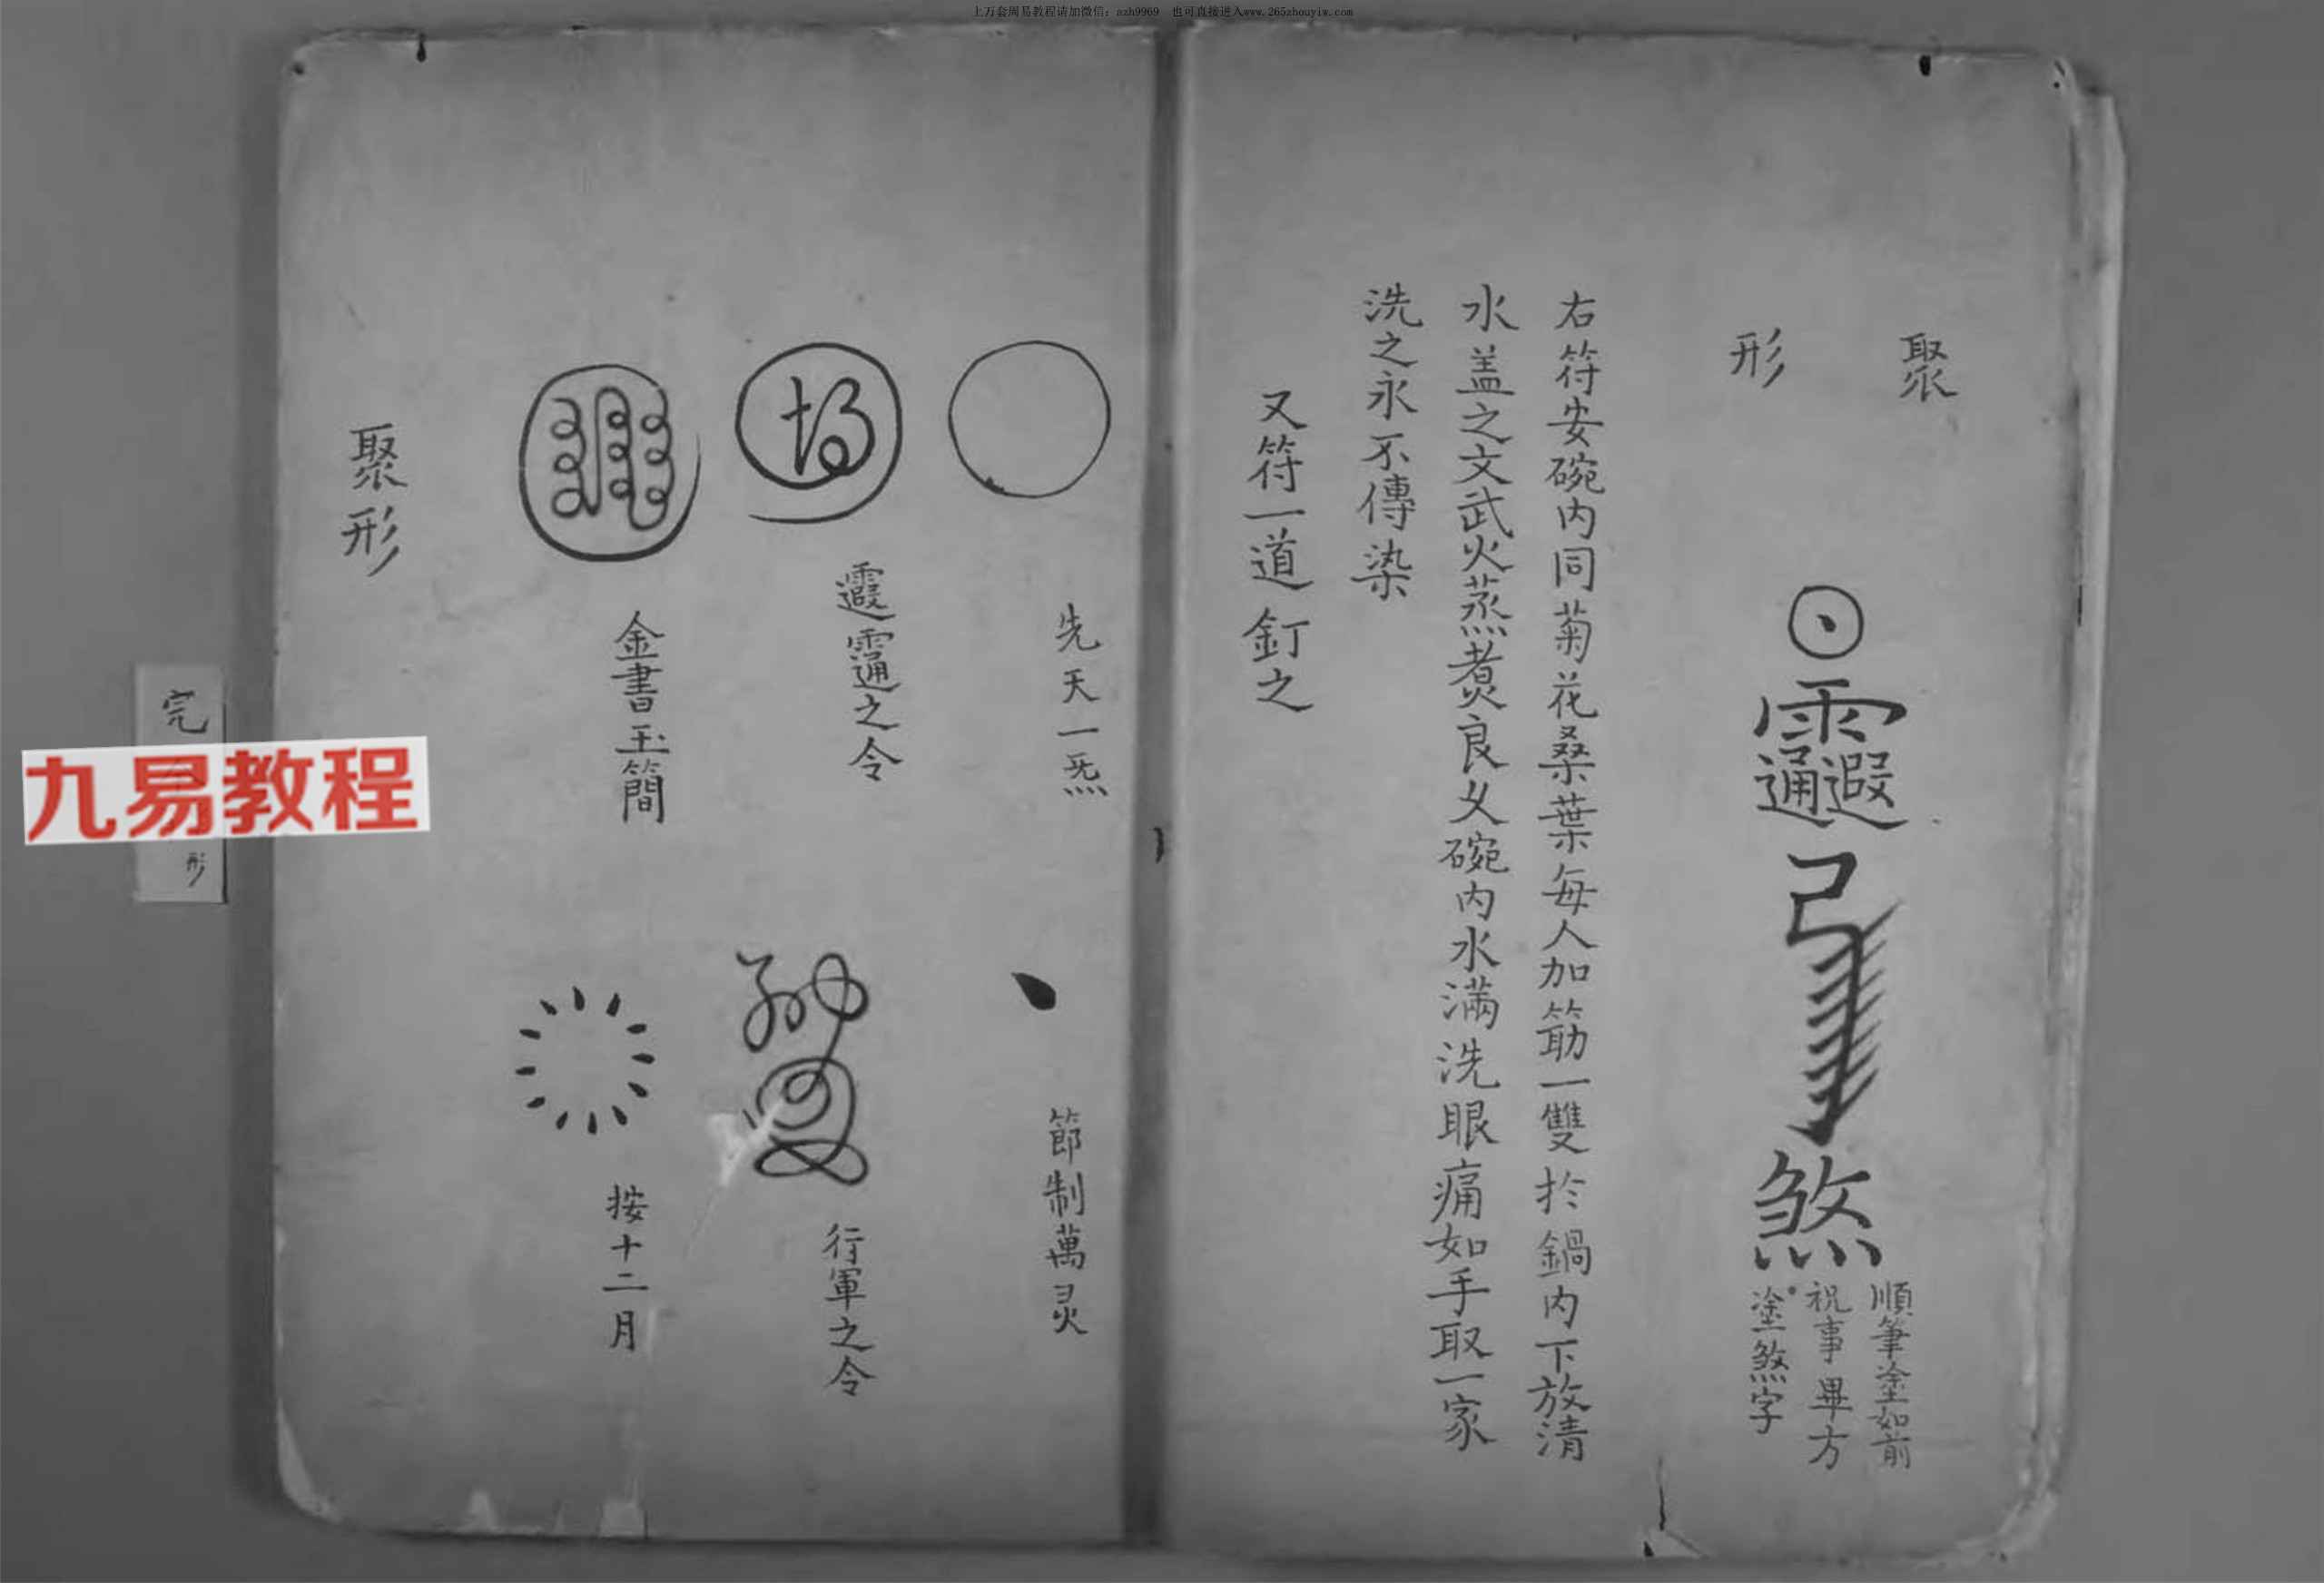 上万套周易教程请加微信：szh9969　也可直接进入www.265zhouyiw.com
聚
形
煞
順筆塗如前
祝事畢方
塗煞字
右符安碗内同菊花桑葉每人加筯一雙於鍋内下放清
水盖之文武火蒸煮良久碗内水满洗眼痛如手取一家
洗之永不傳染
又符一道釘之
先天一炁
節制萬灵
之令
行軍之令
金書玉簡
按十二月
聚形
完
形
九易教程